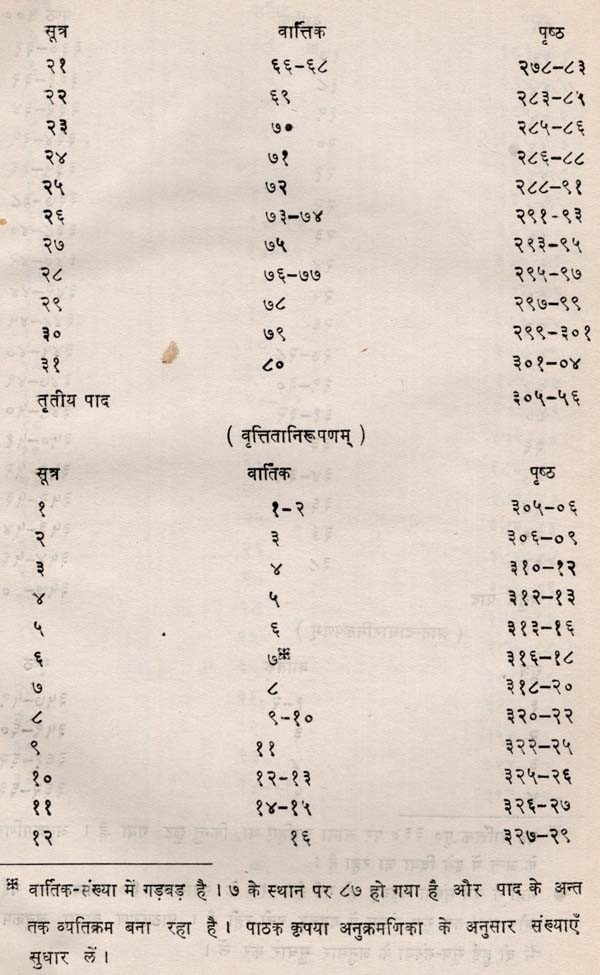 सूत्र वार्त्तिक पृष्ठ
२१ ६६-६८ २७८-८३
२२ ६९ २८३-८५
२३ ७० २८५-८६
२४ ७१ २८६-८८
२५ ७२ २८८-९१
२६ ७३-७४ २९१-९३
२७ ७५ २९३-९५
२८ ७६-७७ २९५-९७
२९ ७८ २९७-९९
३० ७९ २९९-३०१
३१ ८० ३०१-०४
तृतीय पाद ३०५-५६
( वृत्तितानिरूपणम् )
सूत्र वार्तिक पृष्ठ
१ १-२ ३०५-०६
२ ३ ३०६-०९
३ ४ ३१०-१२
४ ५ ३१२-१३
५ ६ ३१३-१६
६ ७※ ३१६-१८
७ ८ ३१८-२०
८ ९-१० ३२०-२२
९ ११ ३२२-२५
१० १२-१३ ३२५-२६
११ १४-१५ ३२६-२७
१२ १६ ३२७-२९
※ वार्तिक-संख्या में गड़बड़ है । ७ के स्थान पर ८७ हो गया है और पाद के अन्त
तक व्यतिक्रम बना रहा है । पाठक कृपया अनुक्रमणिका के अनुसार संख्याएँ
सुधार लें ।